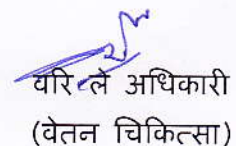 वरि ले अधिकारी
(वेतन चिकित्सा)